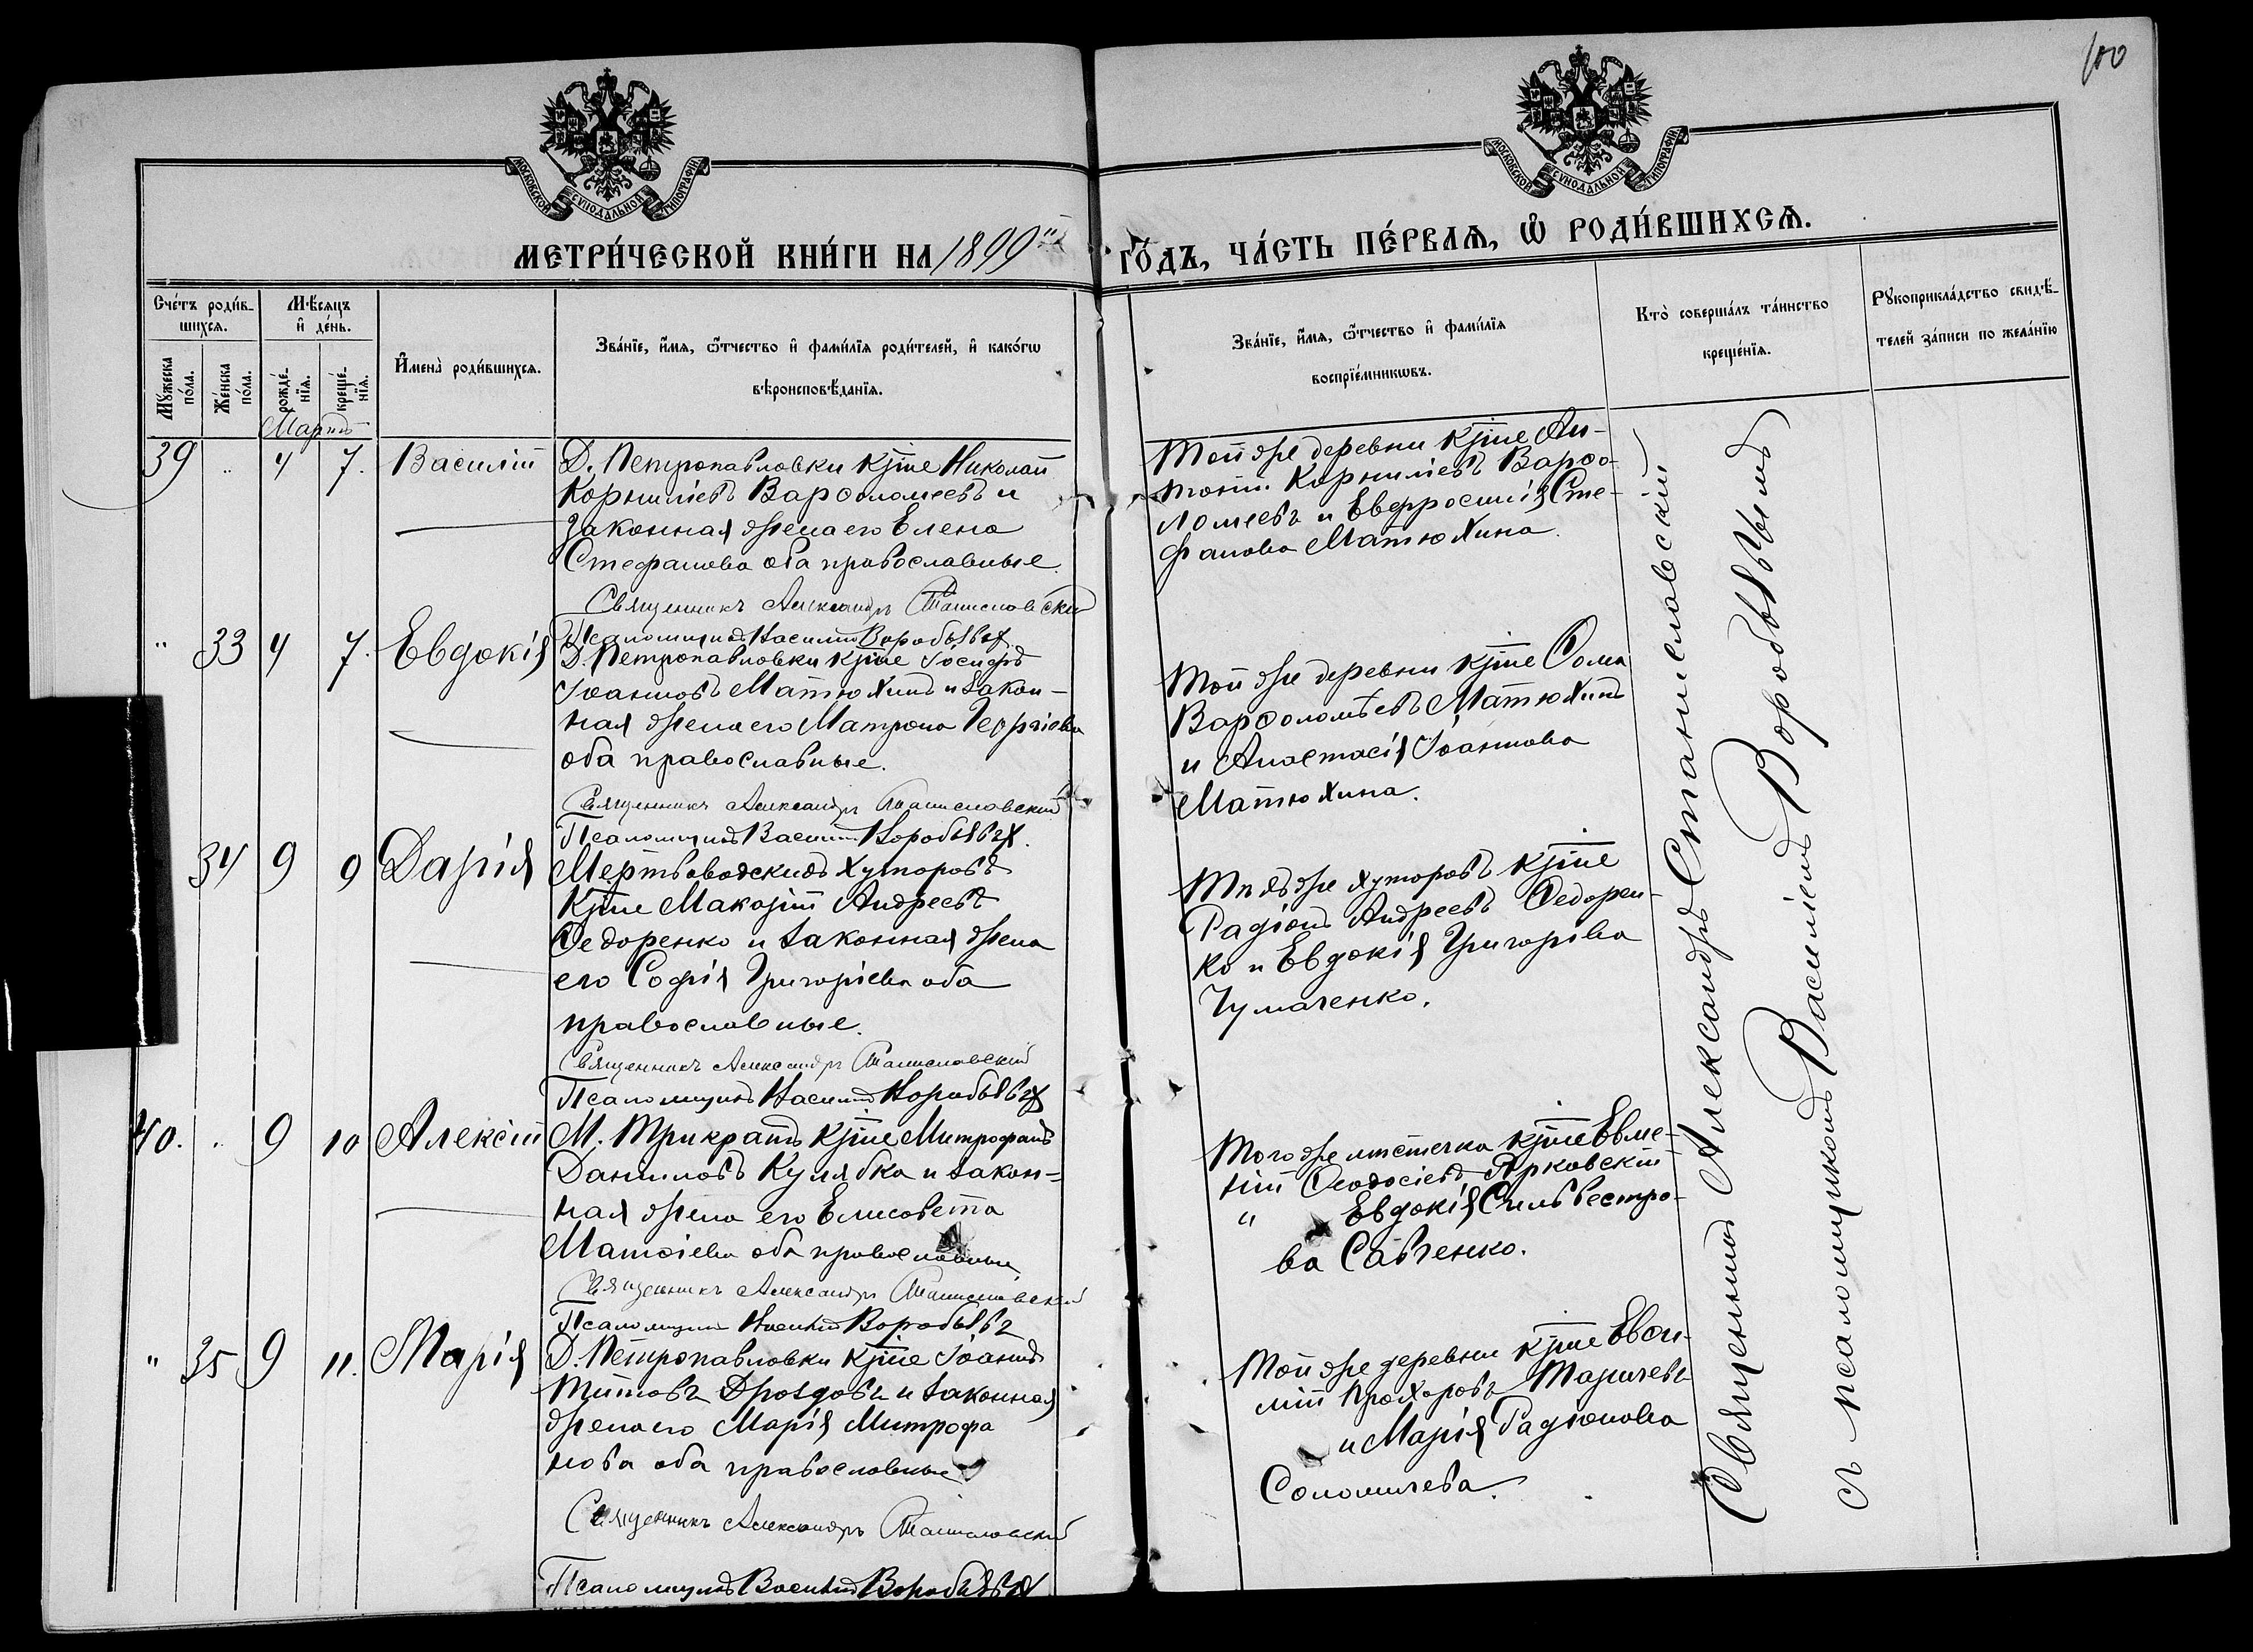 100
МОСКОВСКОЙ СУНОДАЛЬНОЙ ТИПОГРАФИИ
МОСКОВСКОЙ СУНОДАЛЬНОЙ ТИПОГРАФИИ
МЕТРИ́ЧЕСКОЙ КНИ́ГИ НА 1899й
ГО́ДЪ, ЧА́СТЬ ПЕ́РВАѦ, Ѽ РОДИ́ВШИХСѦ.
Сче́тъ роди́в-
шихсѧ.
Мꙋ́жеска по́ла.
Же́нска по́ла.
Мѣ́сѧцъ
и҆ де́нь.
рожде́-нїѧ.
креще́-нїѧ.
И҆мена̀ роди́вшихсѧ.
Зва́нїе, и҆́мѧ, ѻ҆́тчество и҆ фами́лїѧ роди́телей, и҆ како́гѡ
вѣроисповѣ́данїѧ.
Зва́нїе, и҆́мѧ, ѻ҆́тчество и҆ фами́лїѧ
воспрїе́мникѡвъ.
Кто̀ соверша́лъ та́инство
креще́нїѧ.
Рꙋкоприкла́дство свидѣ́-
телей за́писи по жела́нїю
Мартъ
39 " 4 7. Василій
Д. Петропавловки кр̃не Николай
Корниліевъ Варѳоломеевъ и
законная жена его Елена
Стефанова оба православные.
Священникъ Александръ Станиславскій
Псаломщикъ Василій Воробьевъ
Той же деревни кр̃не Ан-
тоній Корниліевъ Варѳо-
ломеевъ и Евфросинія Сте-
фанова Матюхина.
" 33 4 7. Евдокія
Д. Петропавловки кр̃не Іосифъ
Іоанновъ Матюхинъ и закон-
ная жена его Матрона Георгіева
оба православные.
Священникъ Александръ Станиславскій
Псаломщикъ Василій Воробьевъ
Той же деревни кр̃не Ѳома
Варѳоломѣевъ Матюхинъ
и Анастасія Іоаннова
Матюхина.
34 9 9 Дарія
Мертвоводскихъ хуторовъ
кр̃не Макарій Андреевъ
Ѳедоренко и законная жена
его Софія Григоріева оба
православные.
Священникъ Александръ Станиславскій
Псаломщикъ Василій Воробьевъ
Тѣхъ же хуторовъ кр̃не
Радіонъ Андреевъ Ѳедорен-
ко и Евдокія Григоріева
Чумаченко.
40. " 9 10 Алексій
М. Трикратъ кр̃не Митрофанъ
Даниловъ Кулябка и закон-
ная жена его Елисавета
Матѳіева оба православные
Священникъ Александръ Станиславскій
Псаломщикъ Василій Воробьевъ
Того же мѣстечка кр̃не Евме-
ній Ѳеодосіевъ Ярковскій
и Евдокія Сильвестро-
ва Савченко.
" 35 9 11. Марія
Д. Петропавловки кр̃не Іоаннъ
Титовъ Дроздовъ и законная
жена его Марія Митрофа
нова оба православные
Священникъ Александръ Станиславскій
Псаломщикъ Василій Воробьевъ
Той же деревни кр̃не
Прохоровъ
и Марія Радіонова
Соломичева.
Священникъ Александръ Станиславскій
съ псаломщикомъ Василіемъ Воробьевымъ